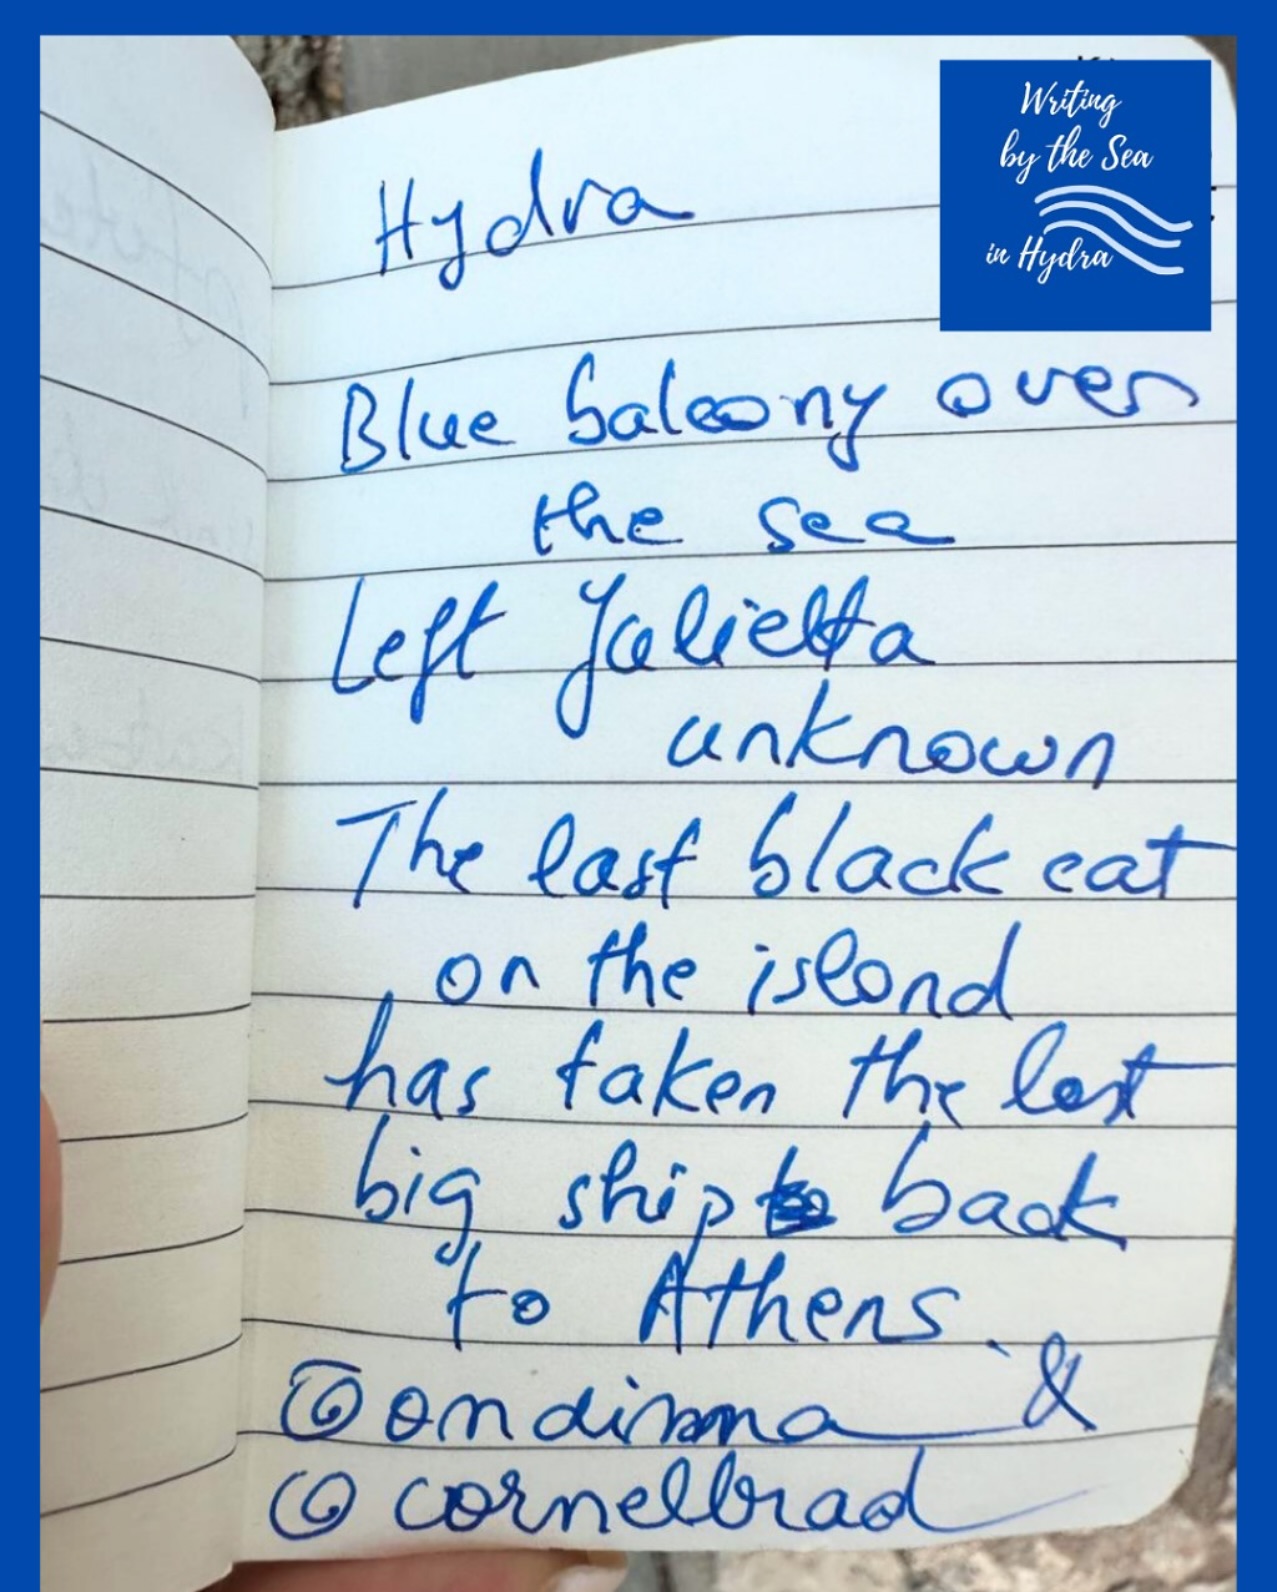 Writing
by the Sea
in Hydra
Hydra
Blue balcony over
the sea
Left Julietta
unknown
The last black cat
on the island
has taken the last
big ship back
to Athens.
&
@cornelbrad